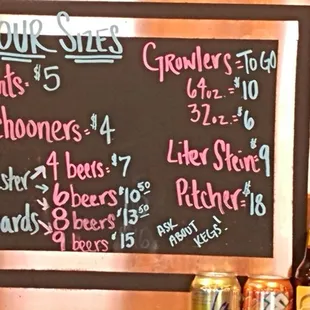 OUR SIZES
nts = $5
chooners = $4
ster
ards
4 beers = $7
6 beers $10.50
8 beers $13.50
9 beers $15
Growlers = TO GO
64oz. = $10
32oz. = $6
Liter Stein $9
Pitcher = $18
ASK ABOUT KEGS!